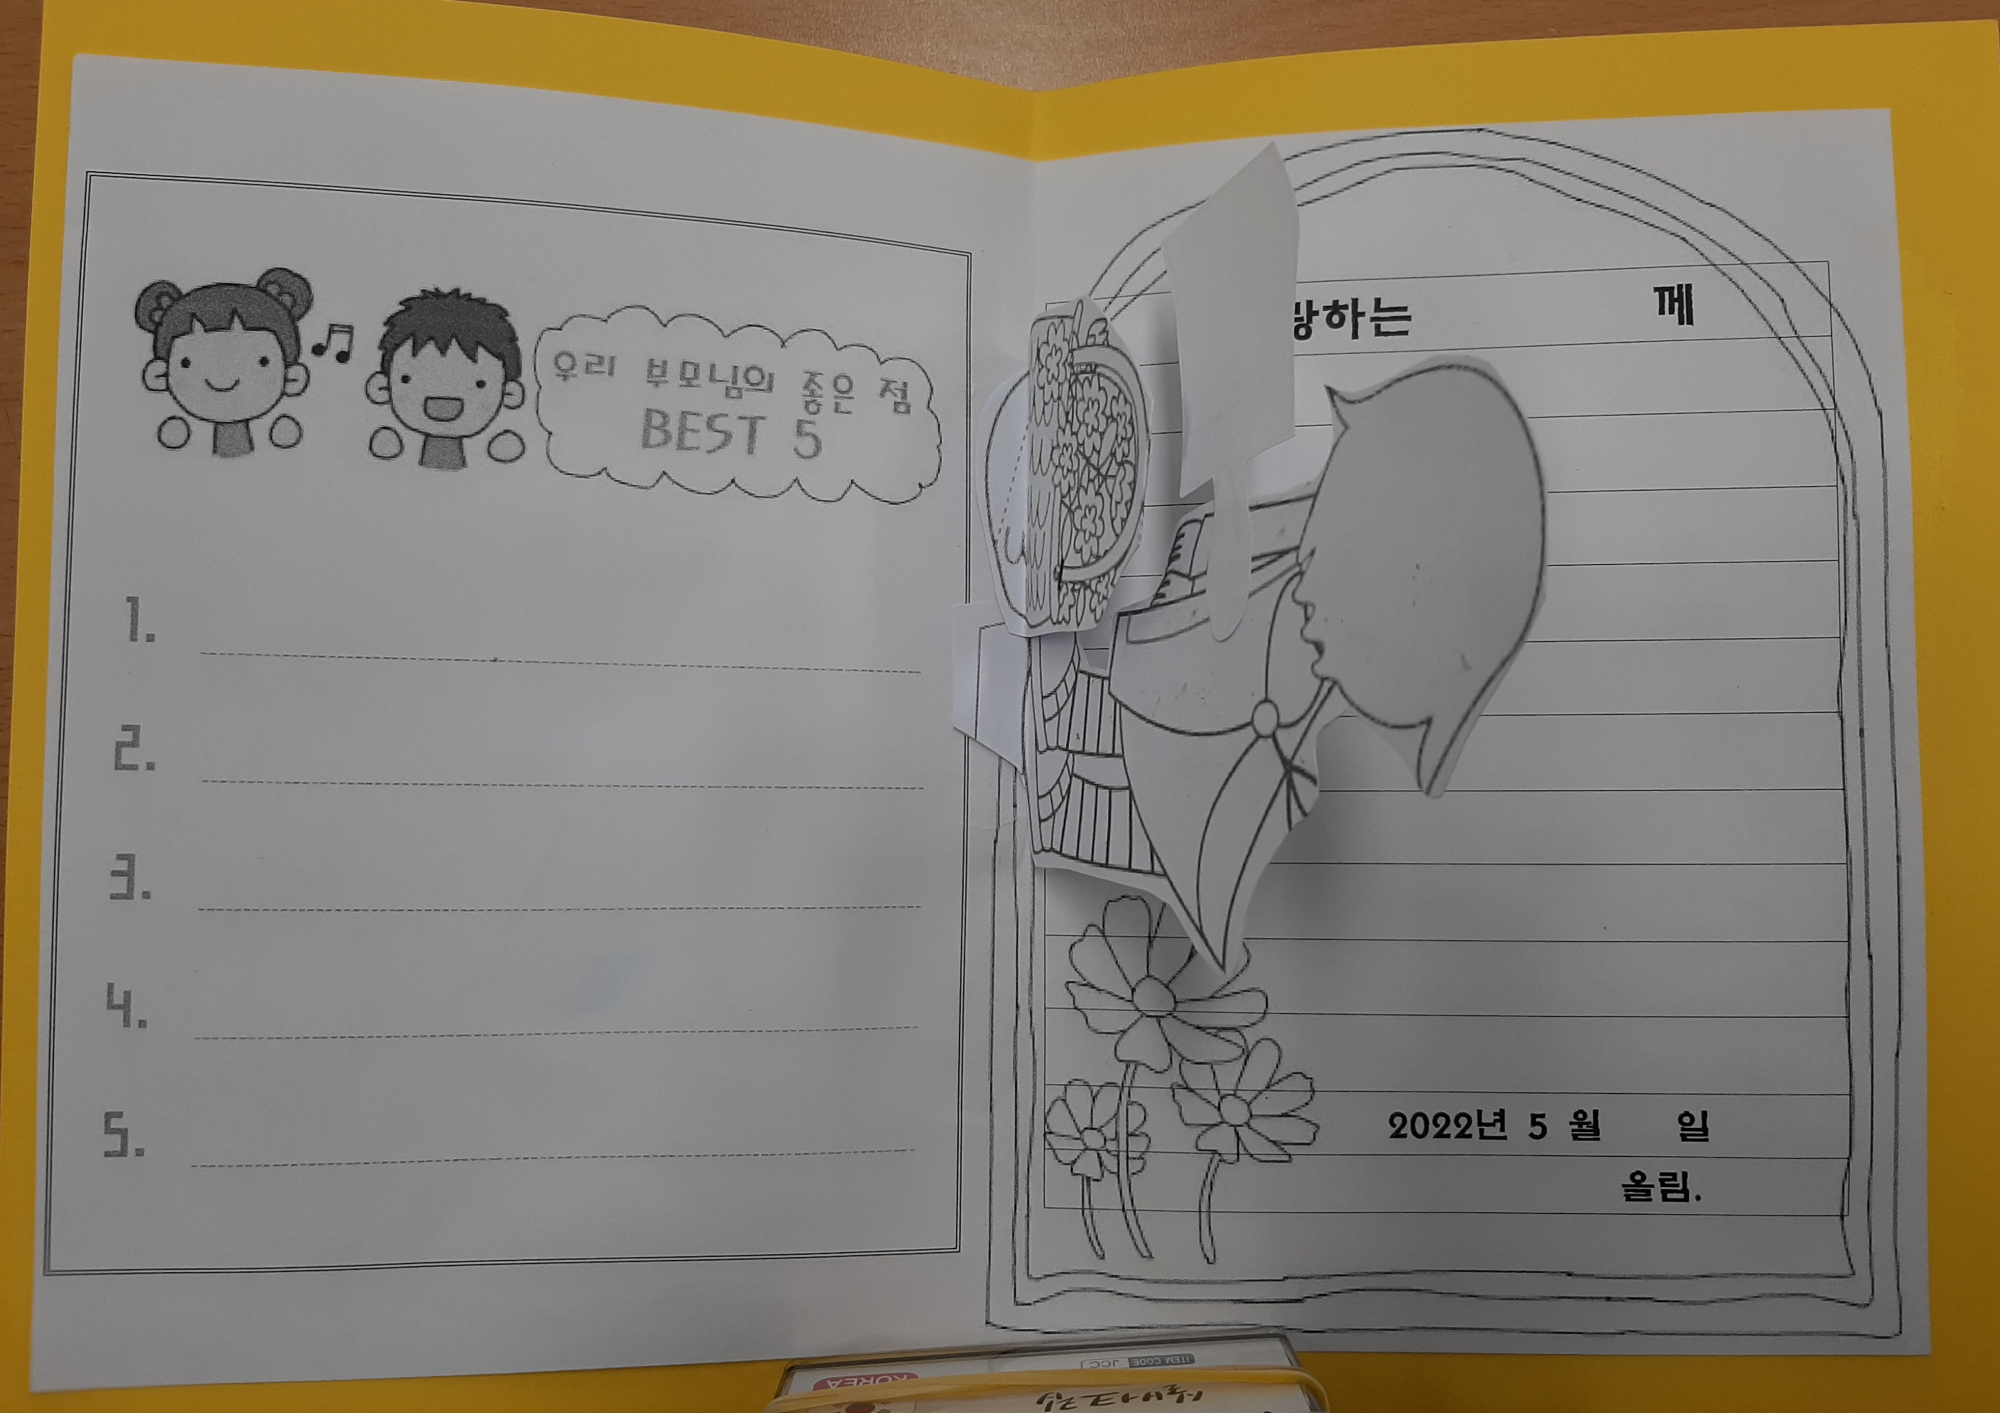 우리 부모님의 좋은 점
BEST 5
1.
2.
3.
4.
5.
랑하는 께
2022년 5 월 일
올림.
ITEM CODE JCC
KOREA